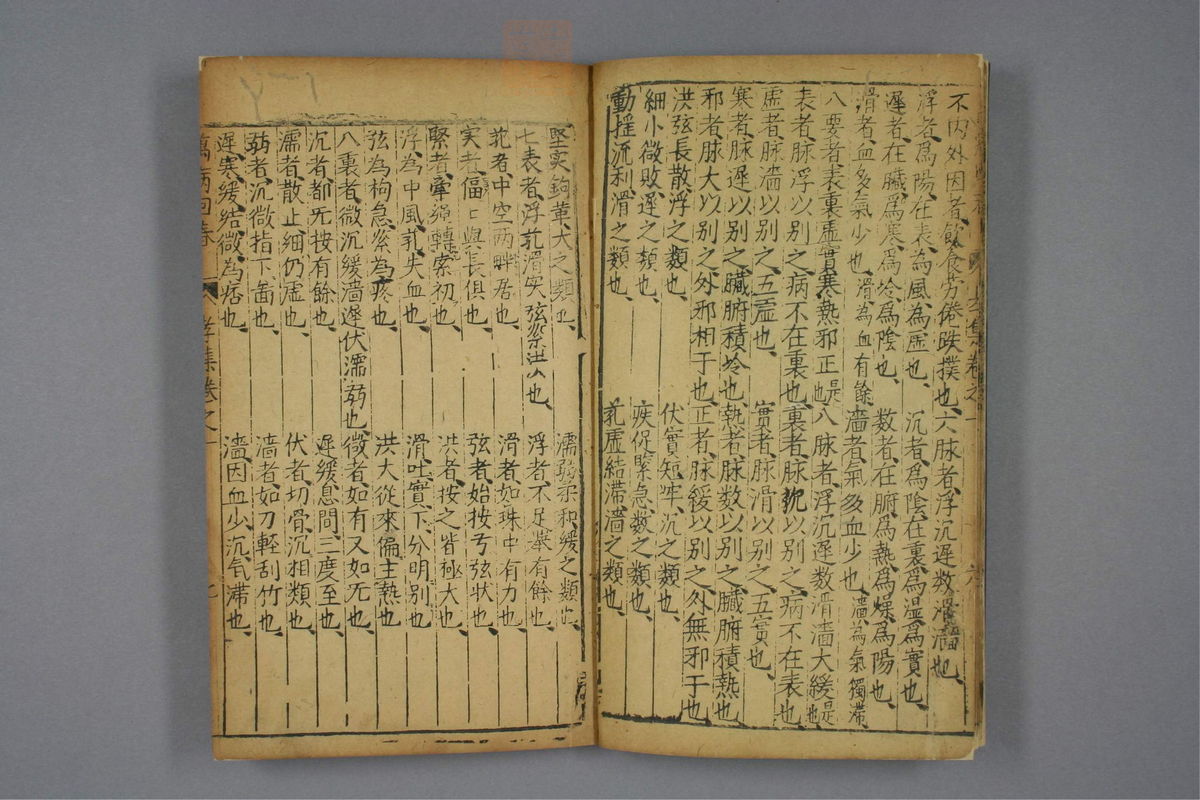 不内外因者、飲食労倦跌撲也、六脉者、浮沉遲数滑濇也、
浮者、爲陽、在表、為風、為虛也、沉者、爲陰、在裏、爲湿、爲實也、
遲者、在臓、爲寒、爲冷、爲陰也、数者、在腑、爲熱、爲燥、爲陽也、
滑者、血多氣少也、滑為血有餘、濇者、氣多血少也、濇為氣獨滞、
八要者、表裏虛實寒熱邪正也是八脉者、浮沉遲数滑濇大緩是也
表者、脉浮以别之、病不在裏也、裏者、脉沉以别之、病不在表也、
虛者、脉濇以别之、五虛也、實者、脉滑以别之、五實也、
寒者、脉遲以别之、臓腑積冷也、熱者、脉数以别之、臓腑積熱也、
邪者、脉大以别之、外邪相干也、正者、脉緩以别之、外無邪干也、
洪弦長散、浮之類也、伏實短牢、沉之類也、
細小微敗、遲之類也、疾促緊急、数之類也、
動揺流利、滑之類也、芤虛結滞、濇之類也、
堅实鉤革、大之類也、濡弱柔和、緩之類也、
七表者、浮芤滑实弦緊洪也、浮者、不足、挙有餘也、
芤者、中空两畔居也、滑者、如珠中有力也、
实者、愊愊與長俱也、弦者、始按弓弦状也、
緊者、牽繩轉索初也、洪者、按之皆極大也、
浮為中風、芤失血也、滑吐、實下、分明别也、
弦為拘急、緊為疼也、洪大從來偏主熱也、
八裏者、微沉緩濇遲伏濡弱也、微者、如有又如无也、
沉者、都无按有餘也、遲緩息間三度至也、
濡者、散止細仍虛也、伏者、切骨沉相類也、
弱者、沉微指下畜也、濇者、如刀輕刮竹也、
遲寒、緩結、微為痞也、濇因血少、沉气滞也、
萬病回春 孝集卷之一